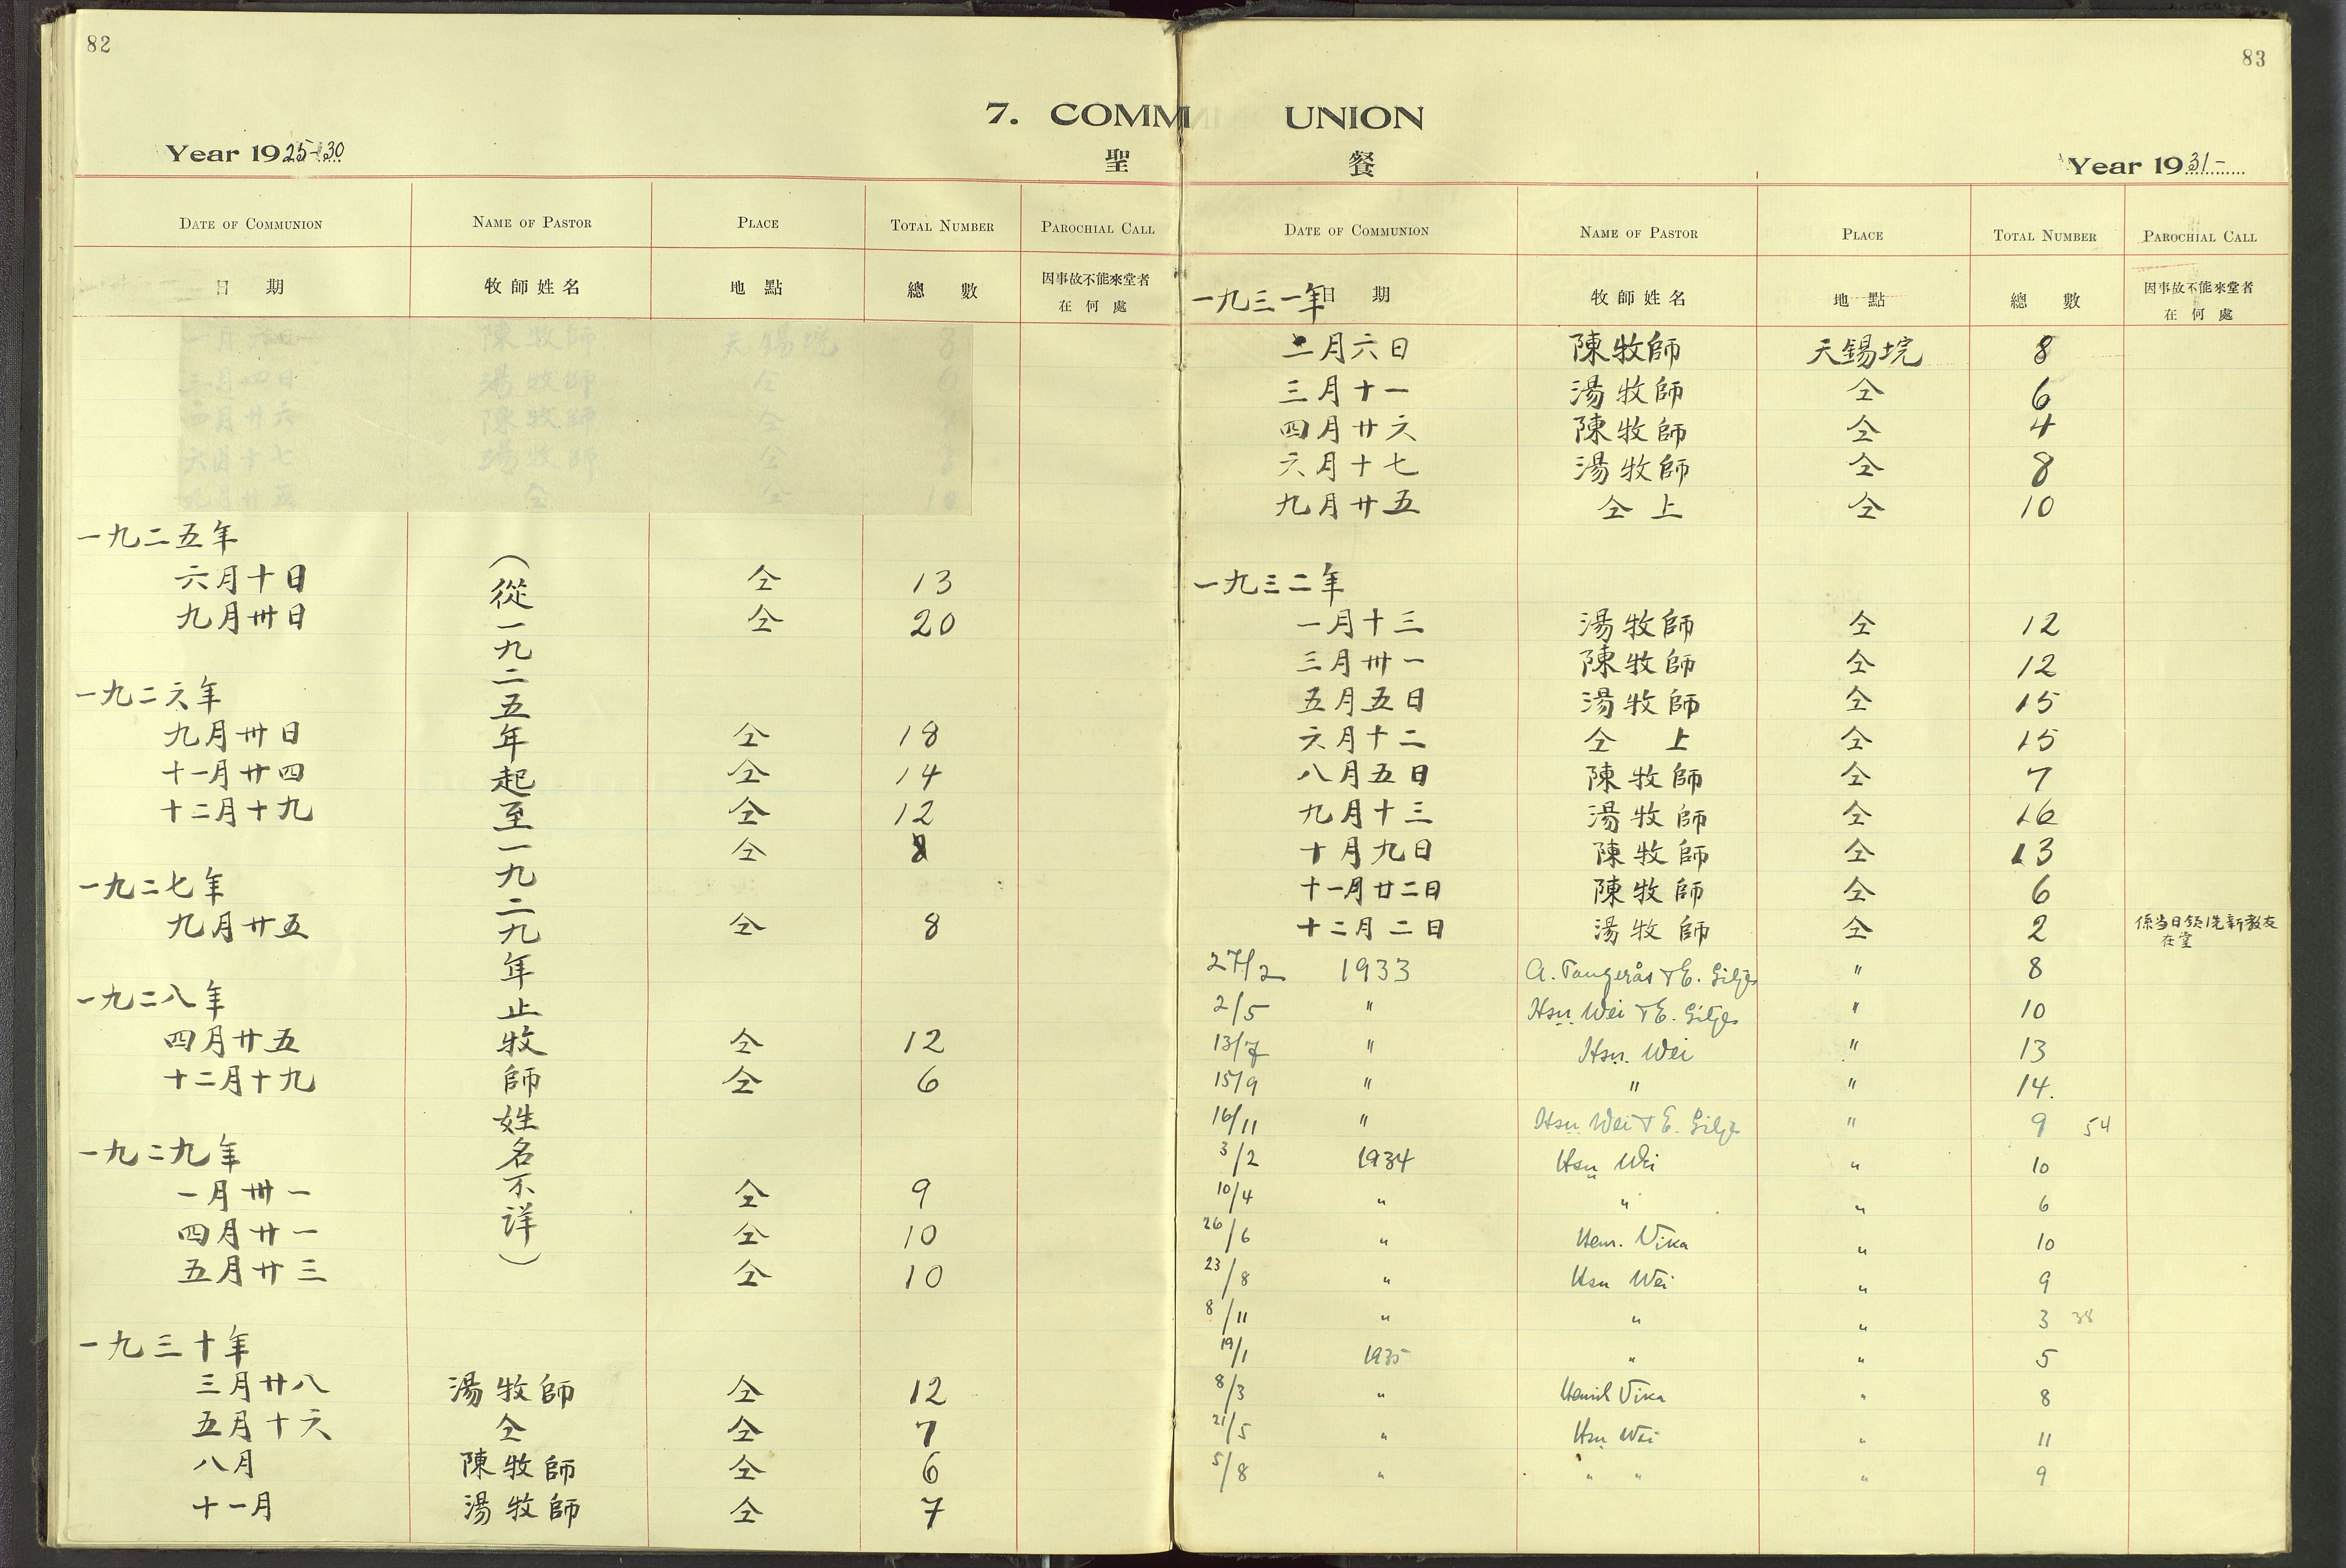 82
7. COMM
Year 1925-30
聖
DATE OF COMMUNION NAME OF PASTOR PLACE TOTAL NUMBER PAROCHIAL CALL
日 期 牧師姓名 地點 總 數 因事故不能來堂者
在何處
一九二五年
六月十日 仝 13
九月卅日 仝 20
一九二六年
九月卅日 仝 18
十一月廿四 仝 14
十二月十九 仝 12
仝 8
一九二七年
九月廿五 仝 8
一九二八年
四月廿五 仝 12
十二月十九 仝 6
一九二九年
一月卅一 仝 9
四月廿一 仝 10
五月廿三 仝 10
(從一九二五年起至一九二九年止牧師姓名不詳)
一九三十年
三月廿八 湯牧師 仝 12
五月十六 仝 仝 7
八月 陳牧師 仝 6
十一月 湯牧師 仝 7
83
UNION
餐
Year 1931-
DATE OF COMMUNION NAME OF PASTOR PLACE TOTAL NUMBER PAROCHIAL CALL
日 期 牧師姓名 地點 總 數 因事故不能來堂者
在何處
一九三一年
二月六日 陳牧師 天錫垸 8
三月十一 湯牧師 仝 6
四月廿六 陳牧師 仝 4
六月十七 湯牧師 仝 8
九月廿五 仝上 仝 10
一九三二年
一月十三 湯牧師 仝 12
三月卅一 陳牧師 仝 12
五月五日 湯牧師 仝 15
六月十二 仝 上 仝 15
八月五日 陳牧師 仝 7
九月十三 湯牧師 仝 16
十月九日 陳牧師 仝 13
十一月廿二日 陳牧師 仝 6
十二月二日 湯牧師 仝 2 係当日領洗新教友
在堂
27/2 1933 A. Tangerås & E. Gilje " 8
2/5 " Hsu Wei & E. Gilje " 10
13/7 " Hsu Wei " 13
15/9 " " " 14.
16/11 " Hsu Wei & E. Gilje " 9 54
3/2 1934 Hsu Wei " 10
10/4 " " " 6
26/6 " Henr. Vika " 10
23/8 " Hsu Wei " 9
8/11 " " " 3 38
19/1 1935 " " 5
8/3 " Henrik Vika " 8
21/5 " Hsu Wei " 11
5/8 " " " " 9